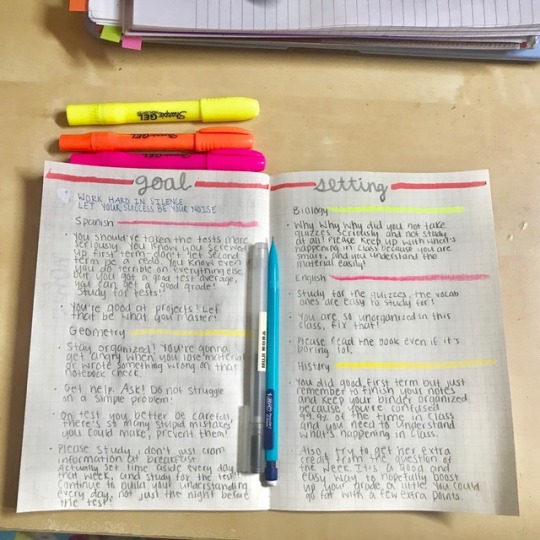 Sharpie GEL
Sharpie GEL
Sharpie GEL
goal
WORK HARD IN SILENCE
LET YOUR SUCCESS BE YOUR NOISE
Spanish
• You should've taken the tests more
seriously. You know you screwed
up first term - don't let second
term be a read. You know even
you do terrible on everything else
but you got a good test average,
you can get a good grade!
Study for tests!
• You're good at projects! Let
that be what you master!
Geometry
• Stay organized! You're gonna
get angry when you lose material
or wrote something wrong on that
notebook check.
• Get help. Ask! Do not struggle
on a simple problem!
• On test you better be careful,
there's so many stupid mistakes
you could make, prevent them!
• Please study, don't just cram
information at breakfast.
Actually set time aside every day
that week, and study for the test!
Continue to build your understanding
every day, not just the night before
the test!
setting
Biology
• Why why why did you not take
quizzes seriously and not study
at all! Please keep up with what's
happening in class because you are
smart, and you understand the
material easily!
English
• Study for the quizzes, the vocab
ones are easy to study for!
• You are so unorganized in this
class, fix that!
• Please read the book even if it's
boring lol.
History
• You did good first term but just
remember to finish your notes
and keep your binder organized
because you're confused
99.9% of the time in class
and you need to understand
what's happening in class.
• Also, try to get her extra
credit from the question of
the week. It's a good and
easy way to hopefully boost
up your grade a little. You could
go far with a few extra points.
MUJI